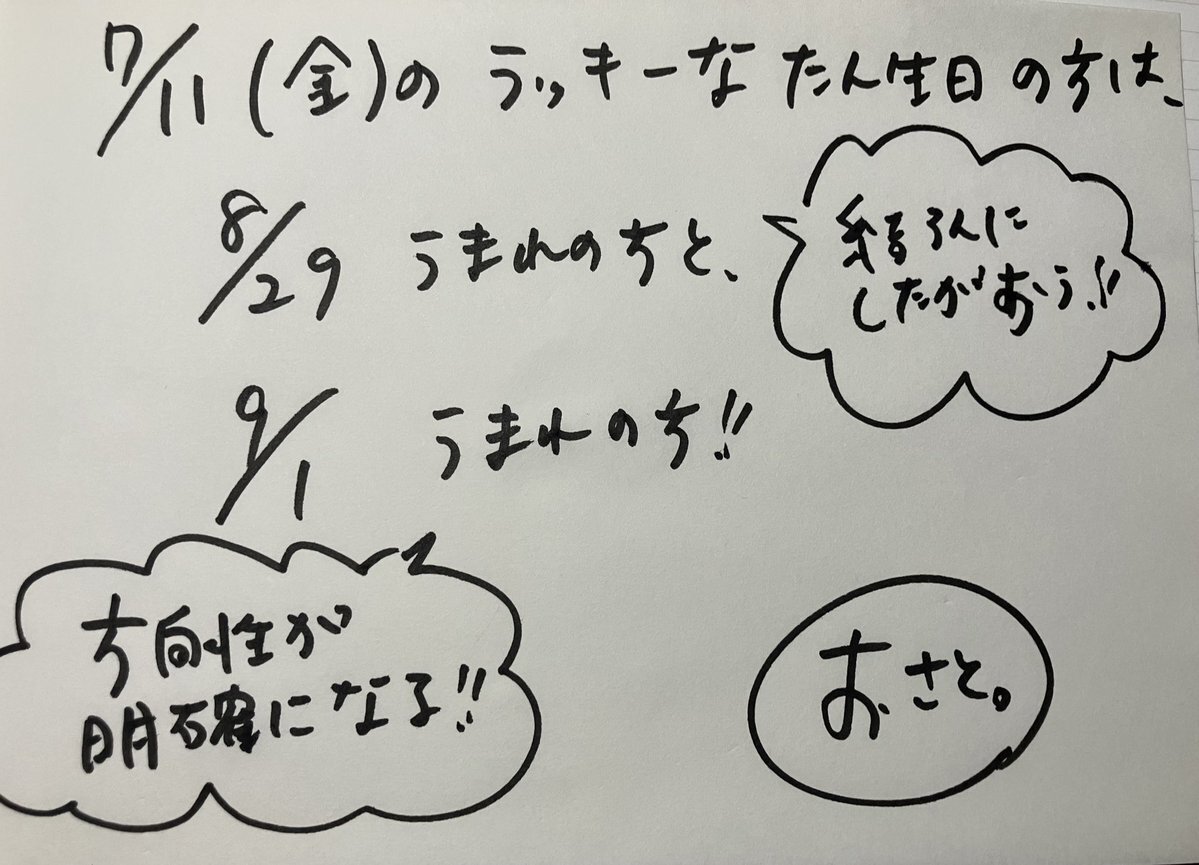 7/11(金)の ラッキーな たん生日 の方は、
8/29 うまれの方と、
結ろんに
したがおう!!
9/1 うまれの方!!
方向性が
明確になる!!
おさと。